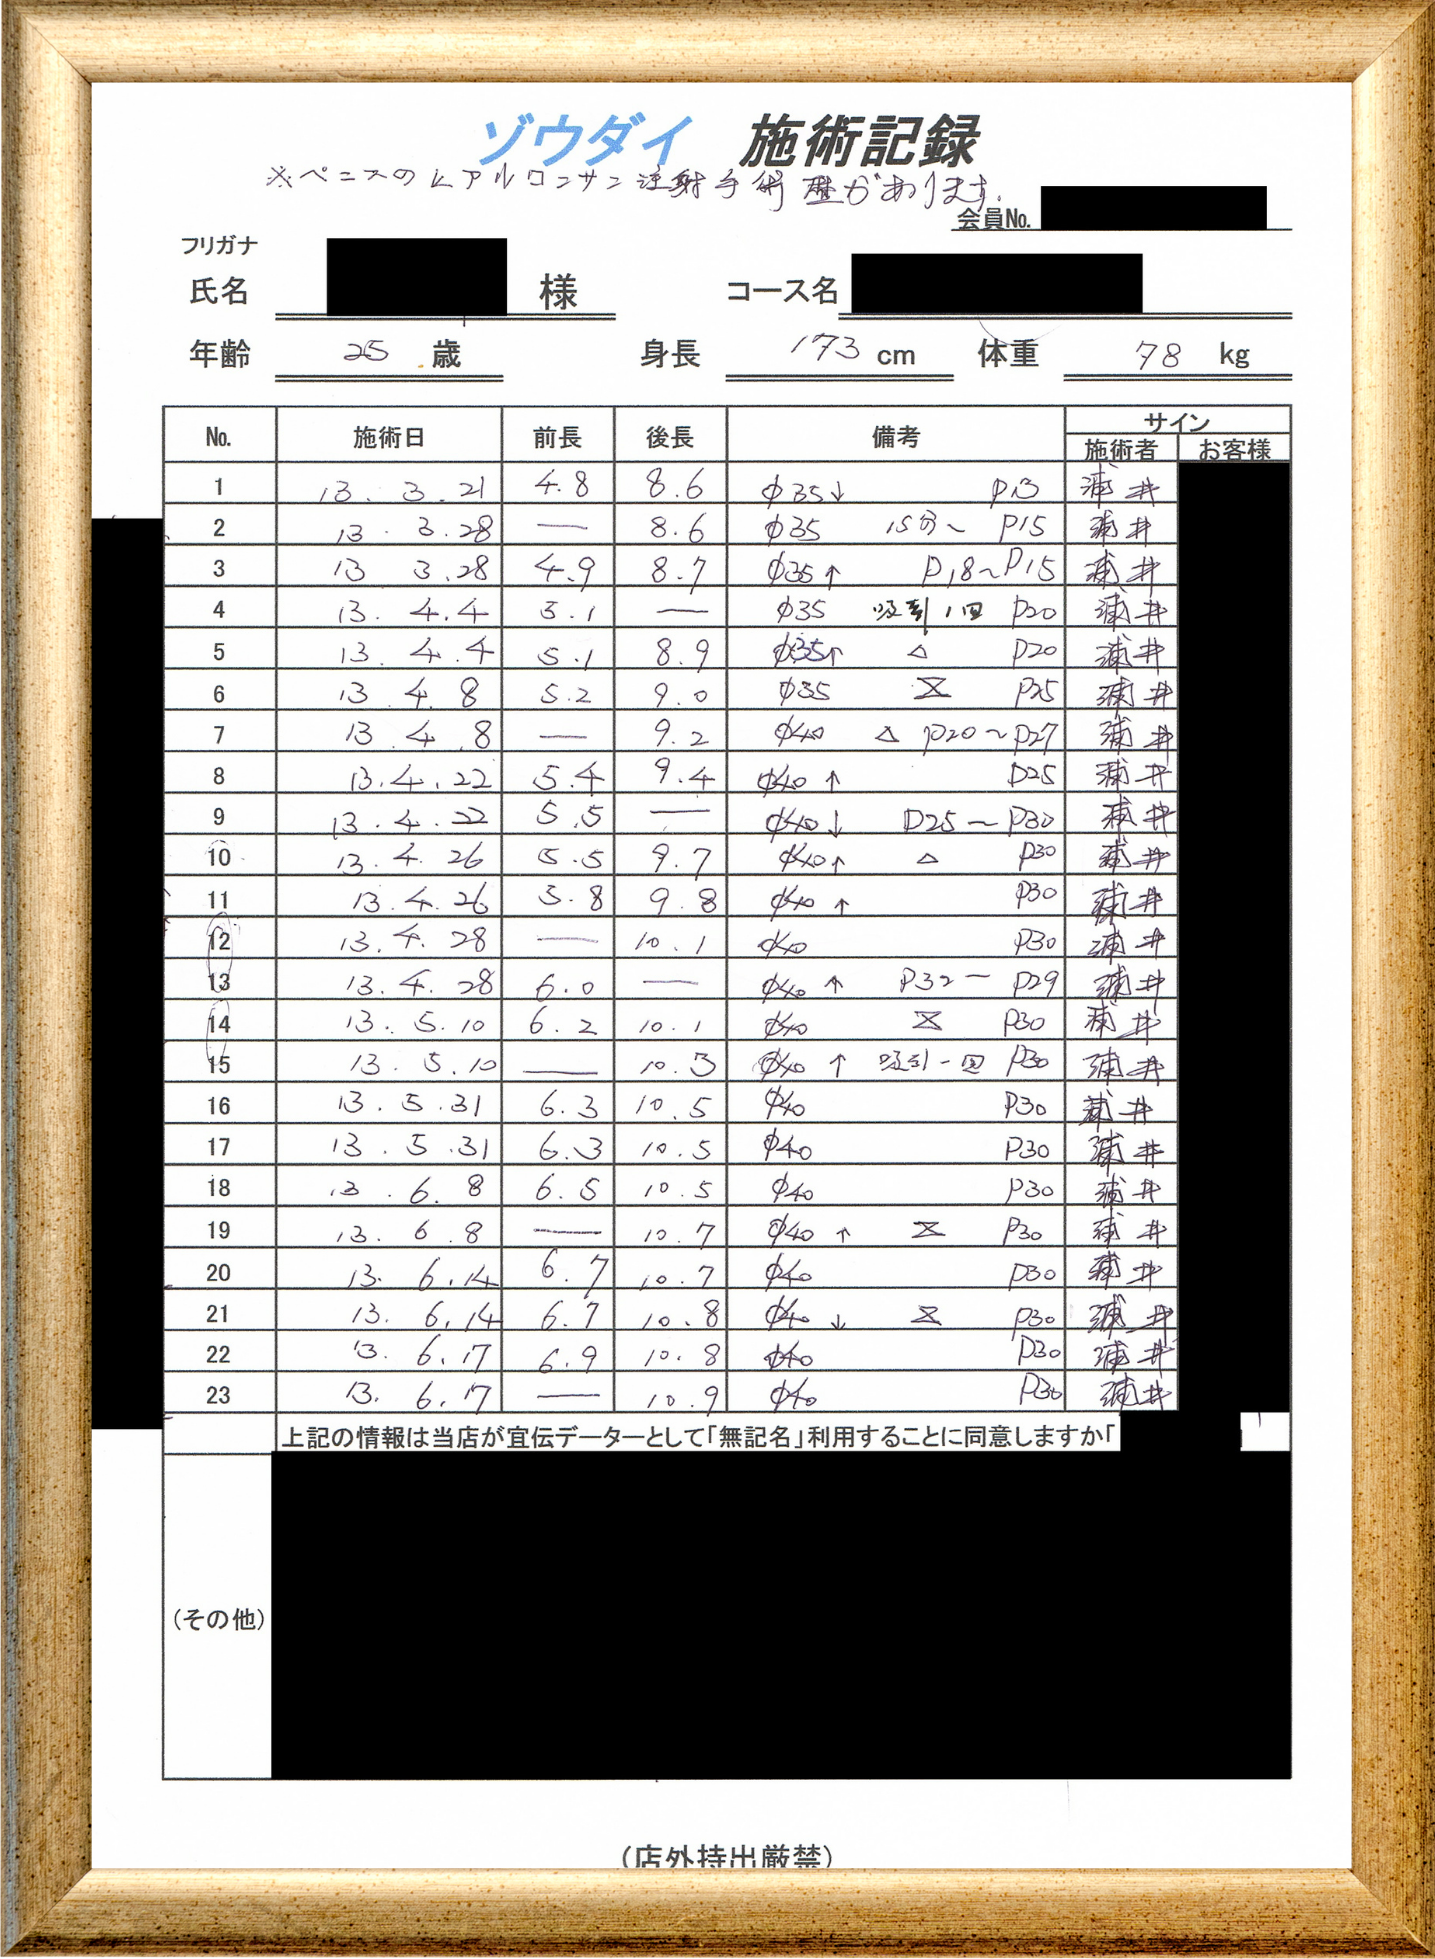 ゾウダイ 施術記録
※ペニスのヒアルロンサン注射手術歴があります。
会員No.
フリガナ
氏名 様 コース名
年齢 25 歳 身長 173 cm 体重 78 kg
No. 施術日 前長 後長 備考 サイン
施術者 お客様
1 13. 3. 21 4.8 8.6 φ35↓ P13 浦井
2 13. 3. 28 — 8.6 φ35 15分~ P15 浦井
3 13 3.28 4.9 8.7 φ35↑ P18~P15 浦井
4 13. 4.4 5.1 — φ35 吸引1回 P20 浦井
5 13. 4.4 5.1 8.9 φ35↑ △ P20 浦井
6 13 4.8 5.2 9.0 φ35 P25 浦井
7 13.4.8 — 9.2 φ40 △ P20~P27 浦井
8 13.4.22 5.4 9.4 φ40↑ P25 浦井
9 13.4.22 5.5 — φ40↓ P25~P30 浦井
10 13.4.26 5.5 9.7 φ40↑ △ P30 浦井
11 13.4.26 5.8 9.8 φ40↑ P30 浦井
12 13.4.28 — 10.1 φ40 P30 浦井
13 13.4.28 6.0 — φ40↑ P32— P29 浦井
14 13.5.10 6.2 10.1 φ40 P30 浦井
15 13.5.10 — 10.3 φ40↑ 吸引一回 P30 浦井
16 13.5.31 6.3 10.5 φ40 P30 浦井
17 13.5.31 6.3 10.5 φ40 P30 浦井
18 13.6.8 6.5 10.5 φ40 P30 浦井
19 13.6.8 — 10.7 φ40↑ P30 浦井
20 13.6.14 6.7 10.7 φ40 P30 浦井
21 13.6.14 6.7 10.8 φ40↓ P30 浦井
22 13.6.17 6.9 10.8 φ40 P30 浦井
23 13.6.17 — 10.9 φ40 P30 浦井
上記の情報は当店が宜伝データーとして「無記名」利用することに同意しますか「
(その他)
(店外持出厳禁)